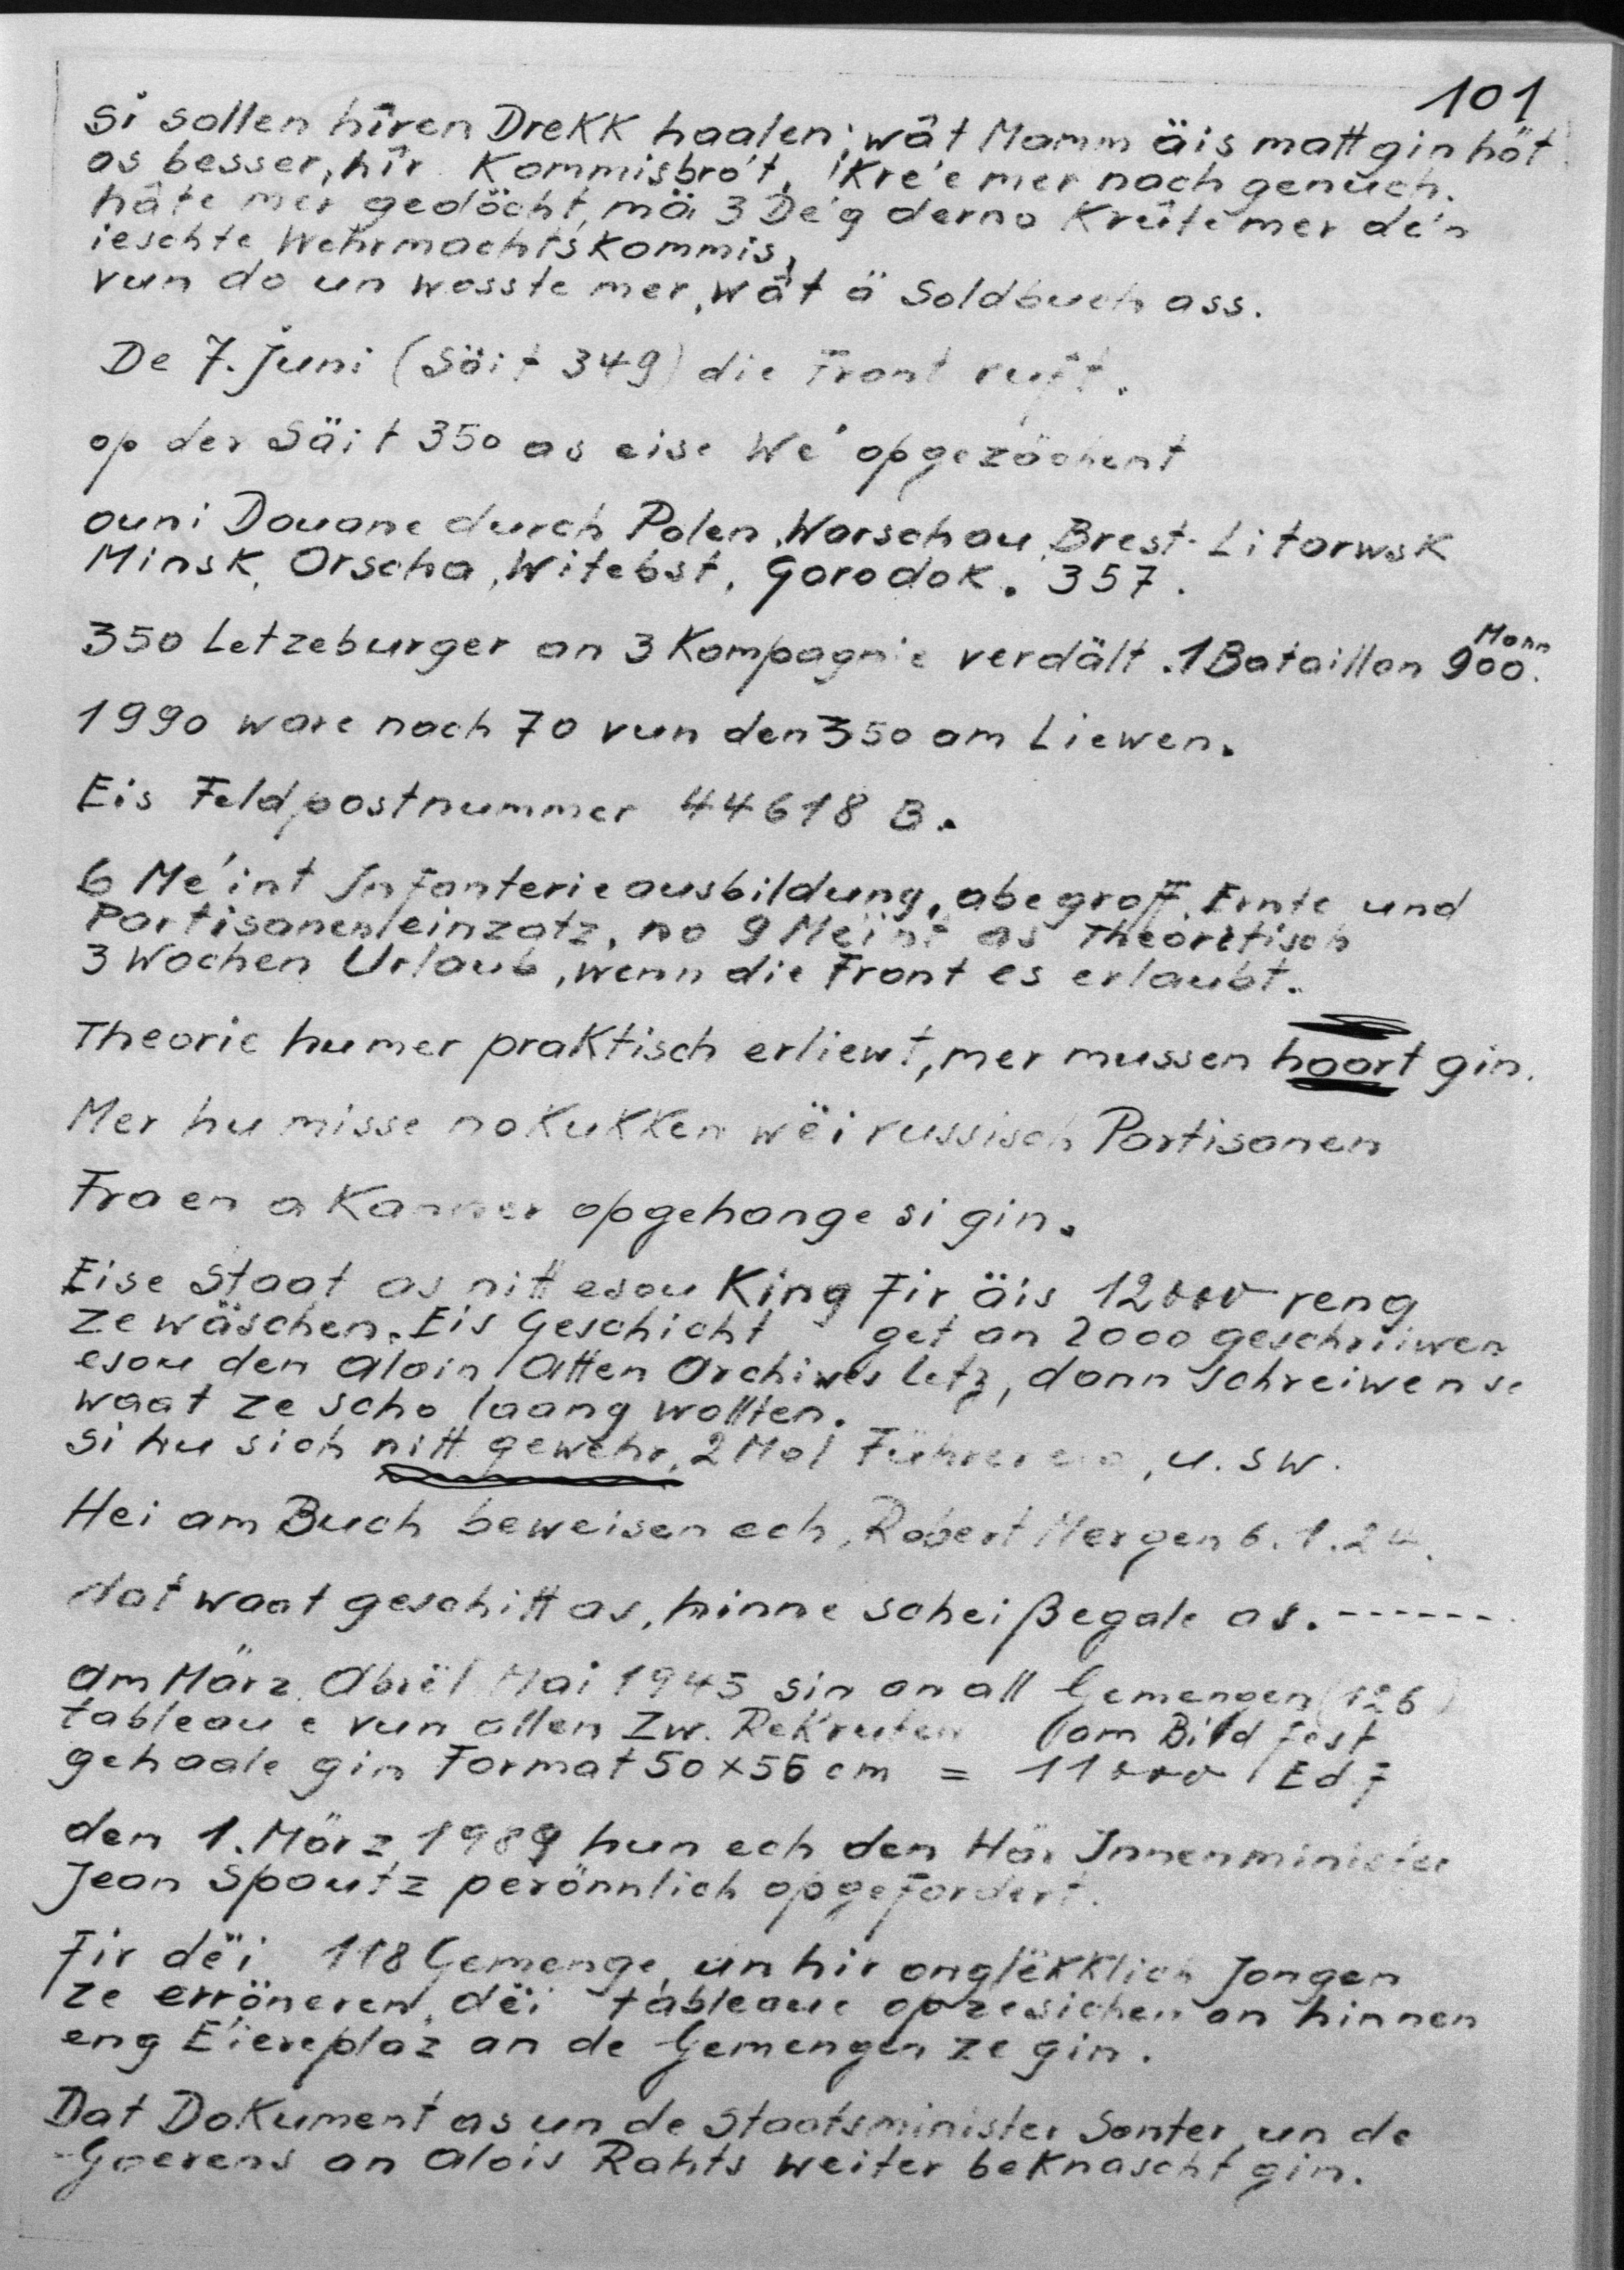 101
Si sollen hîren DreKK haalen, wât Mamm äis matt gin höt
as besser, hîr Kommisbro't, Kre'e mer nach genuch.
hâte mer gedöcht, mä 3 De'g derno Kreîte mer de'n
ieschte WehrmachtsKommis,
vun do un wosste mer, wât ä Soldbuch ass.
De 7. Juni (Söit 349) die Front ruft.
op der Säit 350 as eise We' opgezöchent
ouni Douane durch Polen, Warschau, Brest-Litorwsk
Minsk, Orscha, Witebst, Gorodok. 357.
350 Letzeburger an 3 Kompagnie verdält. 1 Bataillon 900 Mann.
1990 ware nach 70 vun den 350 am Liewen.
Eis Feldpostnummer 44618 B.
6 Me'int Infanterieausbildung, abegraff, Ernte und
Partisaneneinzatz, no 9 Meint as Theoretisch
3 Wochen Urlaub, wenn die Front es erlaubt.
Theorie humer praktisch erliewt, mer mussen haart gin.
Mer hu misse noKuKKen wëi russisch Partisanen
Fraen a Kanner opgehange si gin.
Eise Staat as nitt esou King fir äis 12000 reng
ze wäschen. Eis Geschicht get an 2000 geschriiwen
esou den aloin Atten Archives letz, dann schreiwen se
waat ze scho laang wollten.
Si hu sich nitt gewehr, 2 Mol Führer, u. sw.
Hei am Buch beweisen ech, Robert Mergen 6. 1. 24.
dat waat geschitt as, hinne scheißegale as. ------
am März, Abrël Mai 1945 sin an all Gemengen (126)
tableau e vun allen Zw. Rekruten am Bild fest
gehaale gin Format 50x55 cm = 11000 Ed. F
den 1. März 1989 hun ech den Här Innenminister
Jean Spautz perönnlich opgefordert.
Fir dëi 118 Gemenge, un hir onglëkklich Jongen
ze erröneren, dëi tableaue opzesichen an hinnen
eng E'iereplaz an de Gemengen ze gin.
Dat Dokument as un de Staatsminister Santer, un de
Goerens an Alois Rahts weiter beKnascht gin.